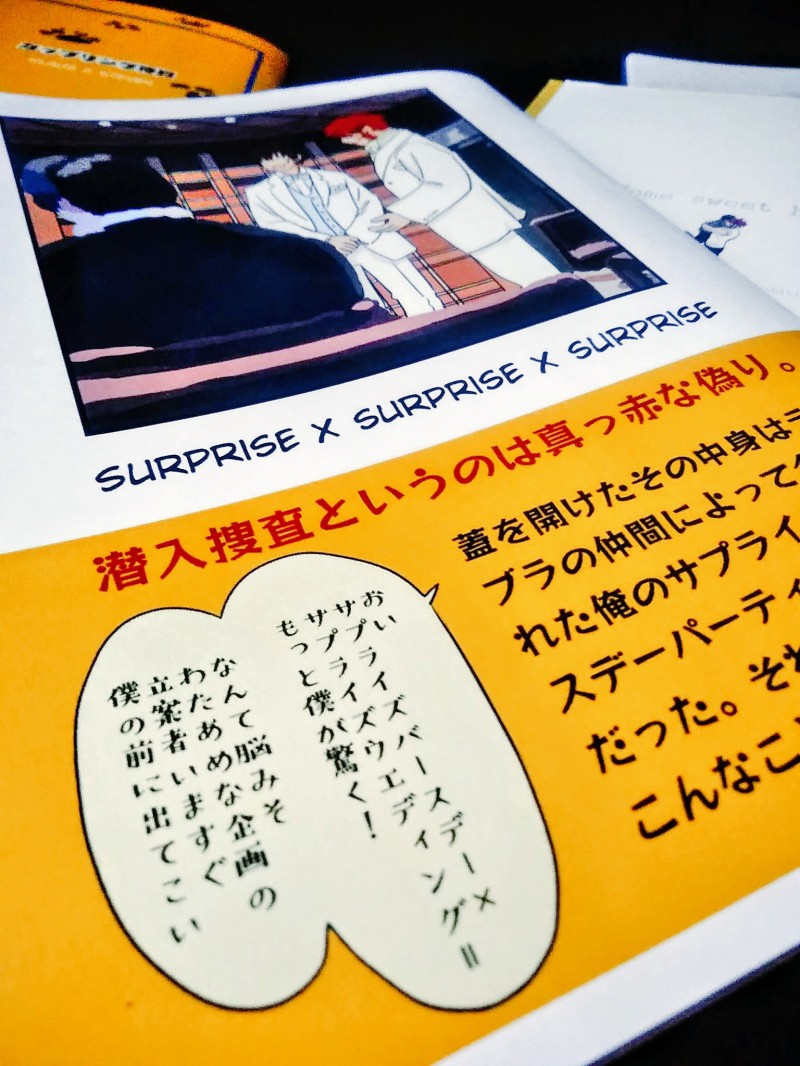 SURPRISE x SURPRISE x SURPRISE
潜入捜査というのは真っ赤な偽り。
蓋を開けたその中身は
ブラの仲間によって
れた俺のサプライ
スデーパーティ
だった。それ
こんなこ
おい
サプライズバースデー×
サプライズウエディング=
もっと僕が驚く!
なんて脳みそ
わたあめな企画の
立案者いますぐ
僕の前に出てこい
sweet